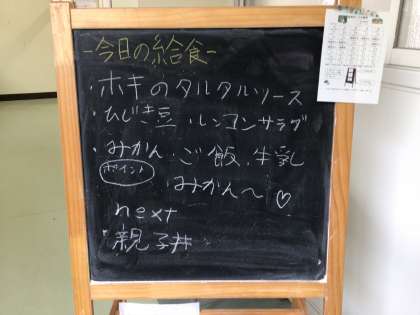 -今日の給食-
・ホキのタルタルソース
・ひじき豆 レンコンサラダ
・みかん、ご飯、牛乳
ポイント
みかん〜♡
next
・親子丼